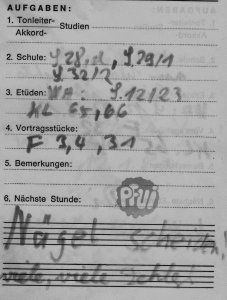 AUFGABEN:
1. Tonleiter-
Akkord- Studien
2. Schule: S.28,2, S.29/1
S.32/2
3. Etüden: WA: S.12/23
HL 65, 66
4. Vortragsstücke:
F 3,4,31
5. Bemerkungen:
Pfui
6. Nächste Stunde:
Nägel
viele, viele